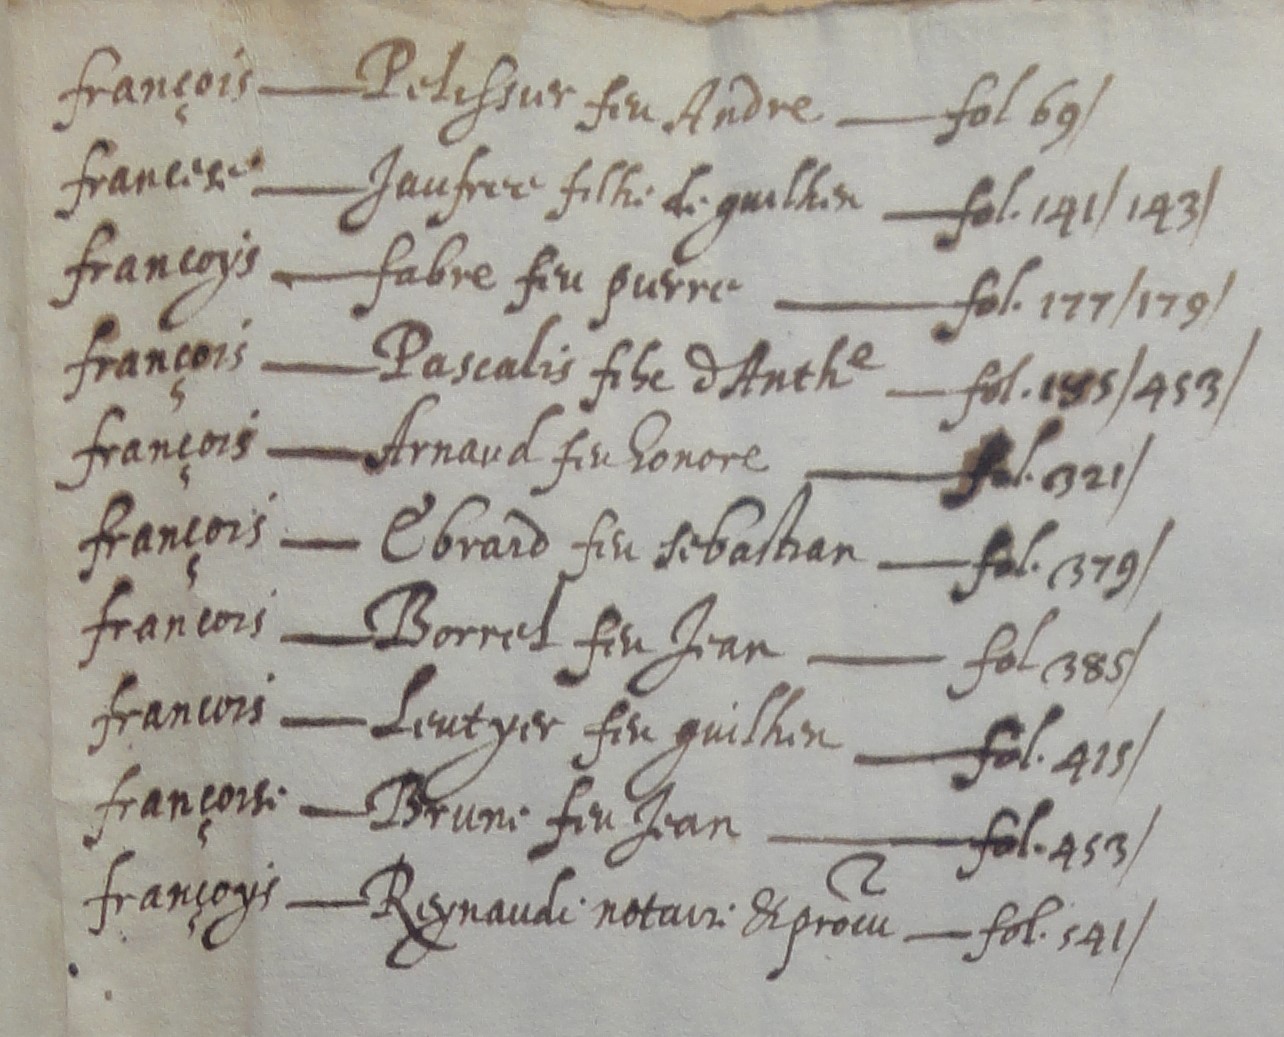 françois — Pelissier feu Andre — fol 69/
francese — Jaufrece filhe de guilhen — fol. 141/ 143/
françoys — fabre feu pierre — fol. 177/179/
françois — Pascalis filz d'Anthe — fol. 185/453/
françois — Arnaud feu honore — fol. 321/
françois — Ebrard feu sebastian — fol. 379/
francois — Borrel feu Jean — fol 385/
francois — Leutyer feu guilhen — fol. 415/
françoise — Brune feu Jean — fol. 453/
françoys — Reynaude notaire & procu — fol. 541/